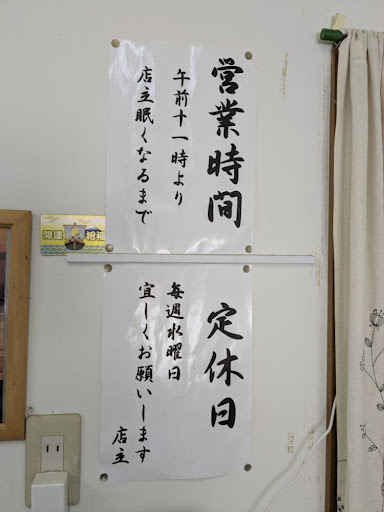 営業時間
午前十一時より
店主眠くなるまで
定休日
毎週水曜日
宜しくお願いします
店主
開運